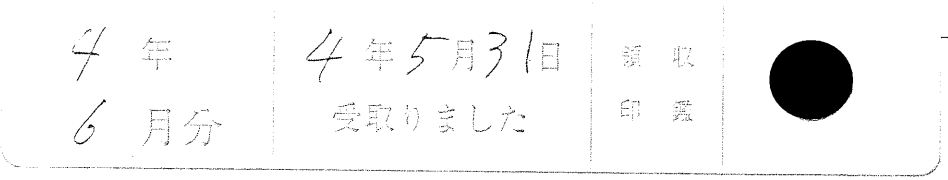 4年
6月分
4年5月31日
受取りました
領収
印鑑